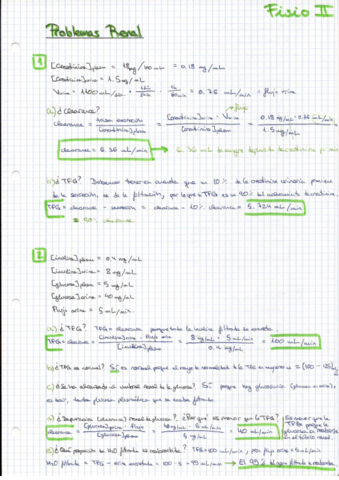 Fisio II
Problemas Renal
1
[Creatinina]plasm = 18mg/100 mL = 0.18 mg/mL
[Creatinina]orina = 1.5 mg/mL
V orina = 1100 mL/día · = 0.76 mL/min = flujo orina
a) ¿Clearance?
flujo
Clearance = = [Creatinina]orina · V orina =
[Creatinina]plasm
1.5 mg/mL
clearance = 6.36 mL/min → 6.36 mL de sangre depurada de creatinina por min
b) ¿TFG? Debemos tener en cuenta que un 10% de la creatinina urinaria proviene
de la secreción, no de la filtración, por lo que la TFG es un 90% del aclaramiento de creatinina.
TFG = clearance - secreción = clearance - 10% clearance = 5.724 mL/min
= 90% clearance
2
[inulina]plasm = 0.4 mg/mL
[inulina]orina = 8 mg/mL
[glucosa]plasm = 5 mg/mL
[glucosa]orina = 40 mg/mL
Flujo orina = 5 mL/min
a) ¿TFG? TFG = clearance porque toda la inulina filtrada se excreta
TFG = clearance = [inulina]orina · flujo orina = 8 mg/mL · 5 mL/min = 100 mL/min
[inulina]plasm 0.4 mg/mL
b) ¿TFG es normal? Sí es normal porque el rango de normalidad de la TFG en mujeres es = (100 - 125)
c) ¿Se ha alcanzado el umbral renal de la glucosa? Sí porque hay glucosuria (glucosa en orina),
es decir, tanta glucosa plasmática que se excreta filtrada.
d) Depuración (clearance) renal de glucosa? ¿Por qué es menor que TFG? Es menor que la
TFG porque la
glucosa se reabsorbe
en el túbulo renal.
clearance = [glucosa]orina · Flujo = 40 mg/mL · 5 mL/min = 40 mL/min
[glucosa]plasm 5 mg/mL
e) ¿Qué proporción de H2O filtrada es reabsorbida? TFG = 100 mL/min, pero flujo orina = 5 mL/min
H2O filtrada = TFG - orina excretada = 100 - 5 = 95 mL/min → El 95% del agua filtrada es reabsorbida